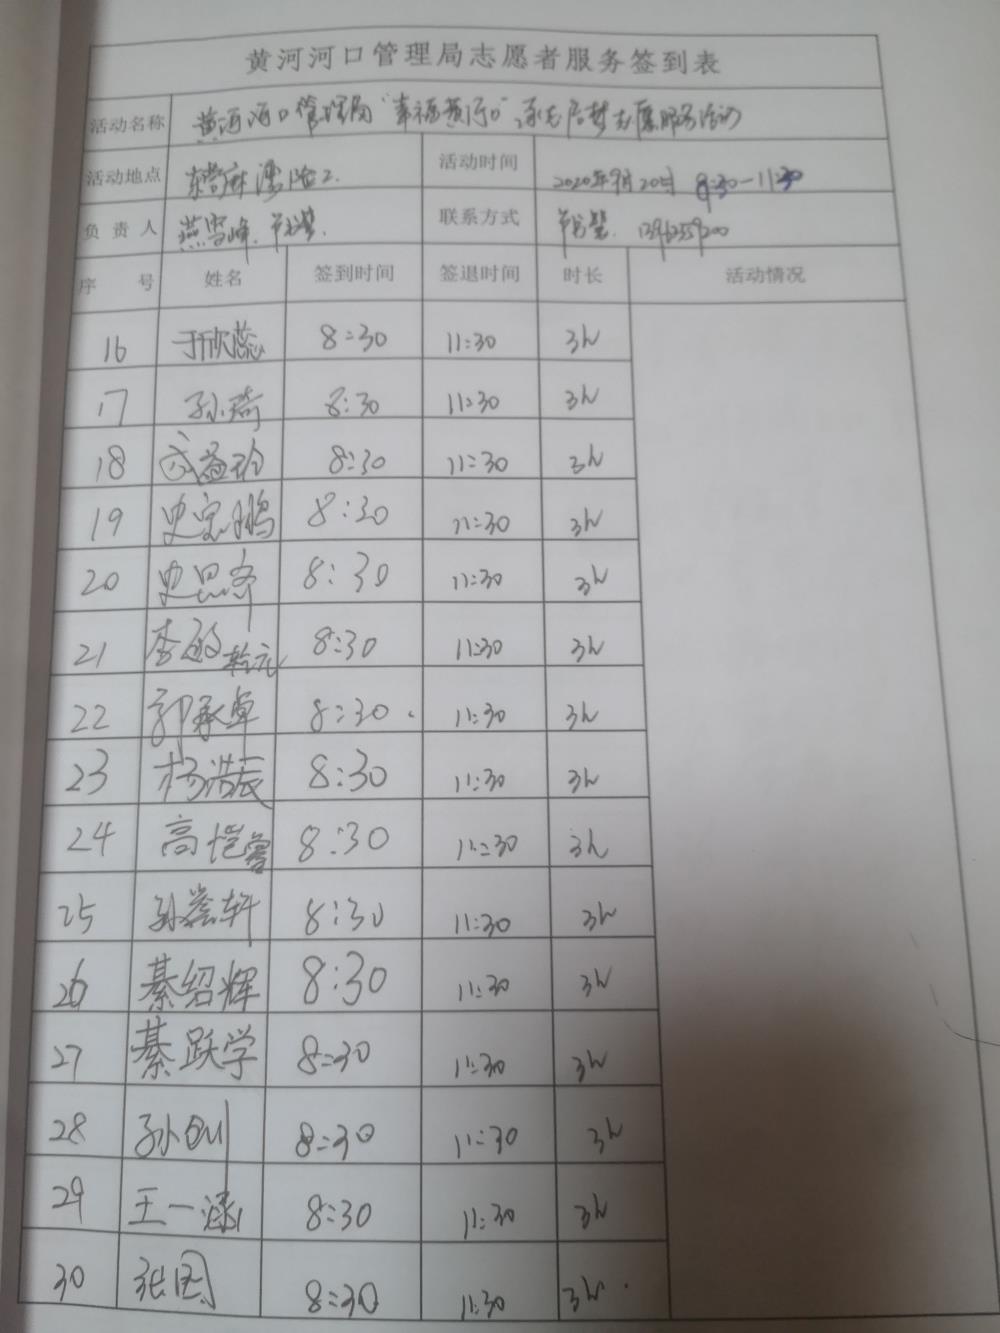 黄河河口管理局志愿者服务签到表
活动名称 黄河河口管理局"幸福黄河口" 志愿服务活动
活动地点 东营麻湾 活动时间 2020年9月20日 8:30-11:30
负责人 燕雪峰 联系方式
序号 姓名 签到时间 签退时间 时长 活动情况
16 于欣蕊 8:30 11:30 3h
17 孙琦 8:30 11:30 3h
18 8:30 11:30 3h
19 史宝鹏 8:30 11:30 3h
20 史思齐 8:30 11:30 3h
21 李 8:30 11:30 3h
22 郭承卓 8:30 11:30 3h
23 杨浩辰 8:30 11:30 3h
24 高恺 8:30 11:30 3h
25 孙誉轩 8:30 11:30 3h
26 綦绍辉 8:30 11:30 3h
27 綦跃学 8:30 11:30 3h
28 孙创 8:30 11:30 3h
29 王一涵 8:30 11:30 3h
30 张 8:30 11:30 3h